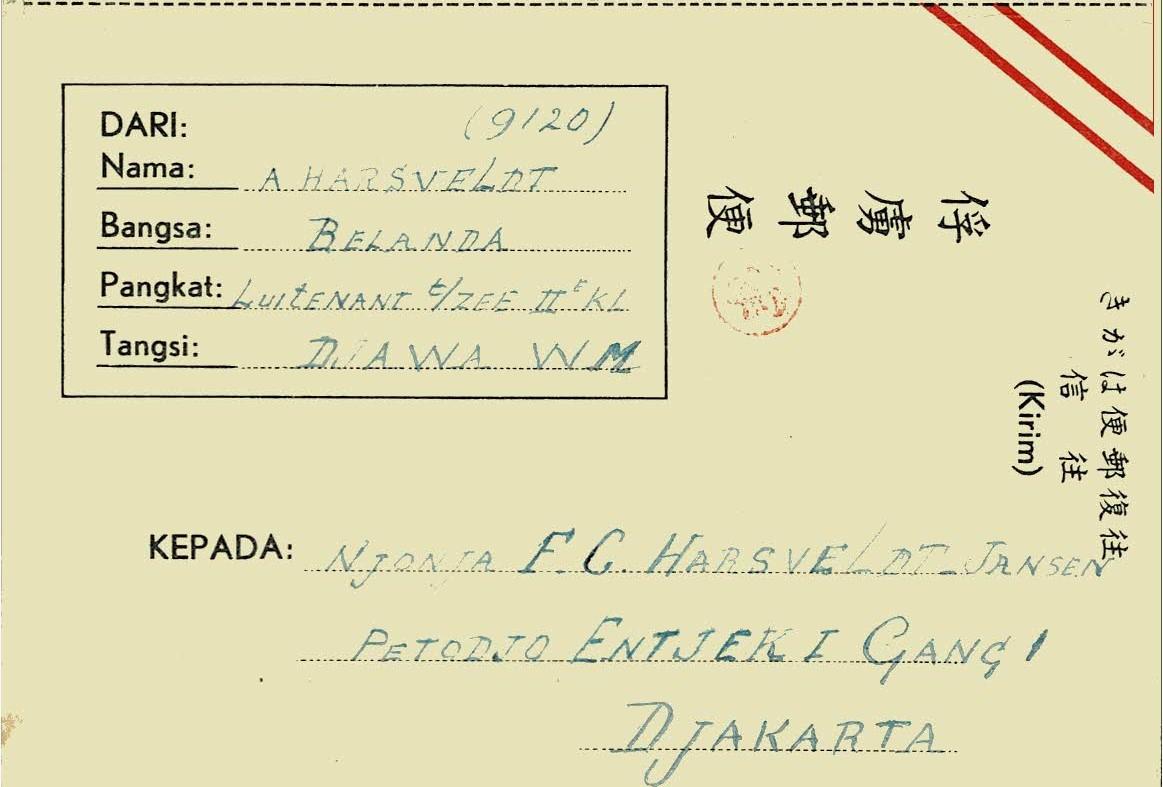 DARI: (9120)
Nama: A HARSVELDT
Bangsa: BELANDA
Pangkat: LUITENANT t/ZEE IIE KL
Tangsi: DJAWA WM
俘虜郵便
往復郵便はがき
往信
(Kirim)
KEPADA: NJONJA F. C. HARSVELDT-JANSEN
PETODJO ENTJEK I GANG 1
DJAKARTA